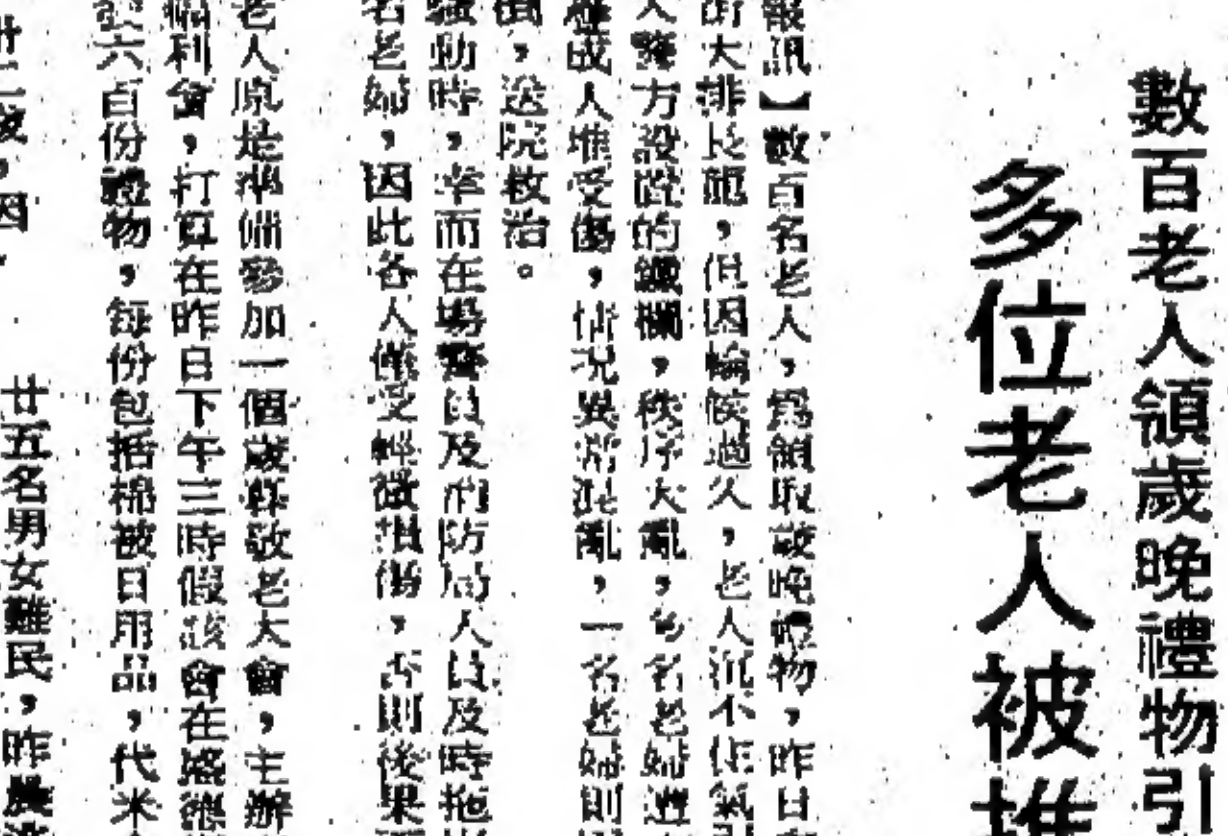 數百老人領歲晚禮物引
多位老人被推
報訊】數百名老人，爲領取歲晚禮物，昨日
街大排長龍，但因輪候過久，老人沉不住氣引
人警方設置的鐵欄，秩序大亂，多名老婦遭
壓成人堆受傷，情況異常混亂，一名老婦則
倒，送院救治。
騷動時，幸而在場警員及消防局人員及時拖
名老婦，因此各人僅受輕微損傷，否則後果
老人原是準備參加一個歲暮敬老大會，主辦
福利會，打算在昨日下午三時假該會在
六百份禮物，每份包括棉被日用品，代米
廿五名男女難民，昨晨
因